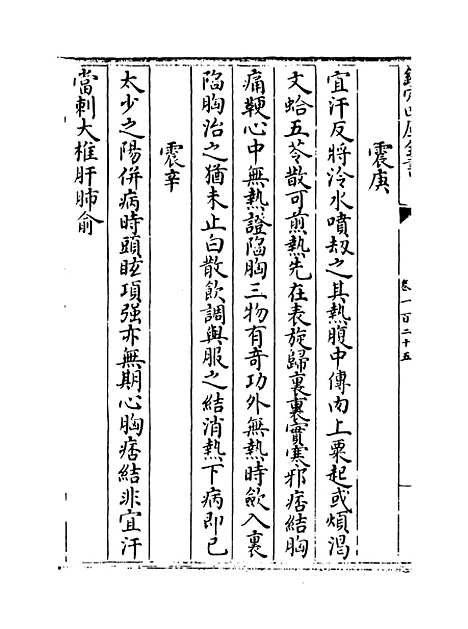 欽定四庫全書
卷一百二十五
震庚
宜汗反將冷水噴劫之其熱腹中傳内上粟起或煩渴
文蛤五苓散可煎熱先在表旋歸裏裏實寒邪痞結胸
痛鞕心中無熱證陷胸三物有奇功外無熱時斂入裏
陷胸治之猶未止白散飲調與服之結消熱下病即已
震辛
太少之陽併病時頭眩項强亦無期心胸痞結非宜汗
當刺大椎肝肺俞